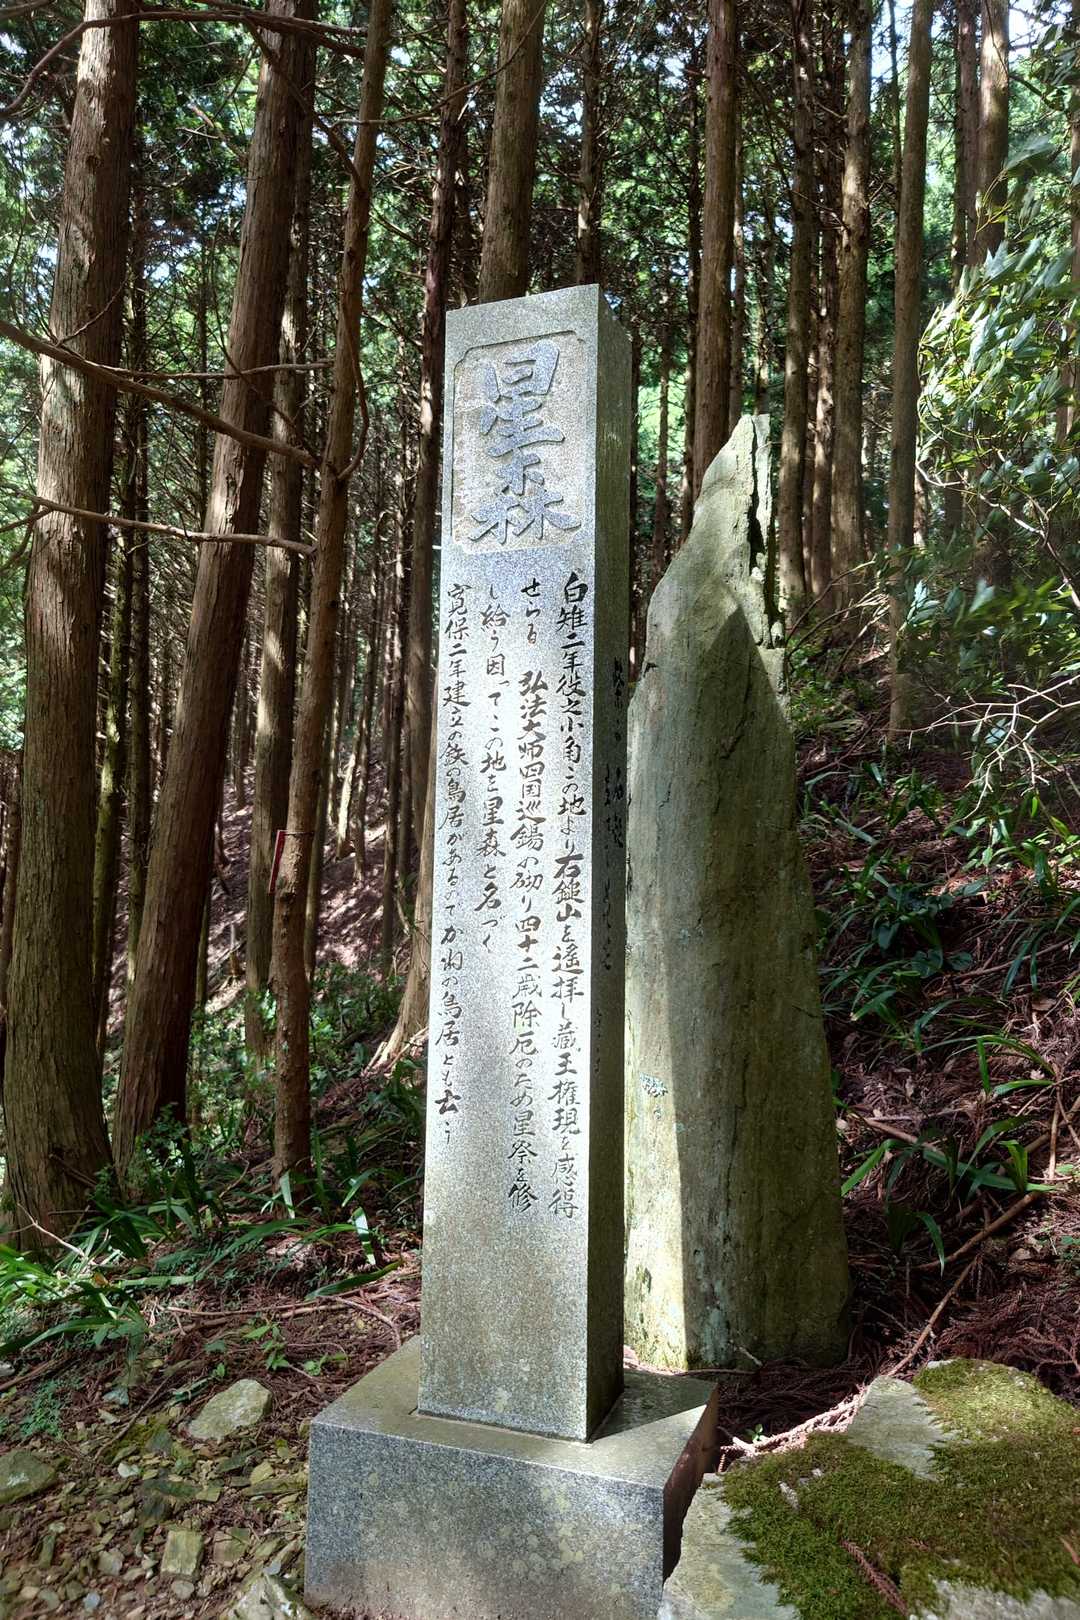 星森
白雉二年役之小角この地より石鎚山を遥拝し蔵王権現を感得
せらる 弘法大師四国巡錫の砌り四十二歳除厄のため星祭を修
し給う因ってこの地を星森と名づく
寛保二年建立の鉄の鳥居があるのでかねの鳥居とも云う